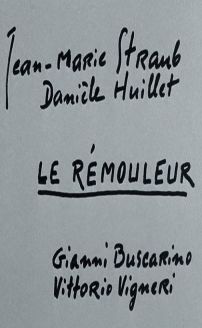 Jean-Marie Straub
Danièle Huillet
LE RÉMOULEUR
Gianni Buscarino
Vittorio Vigneri